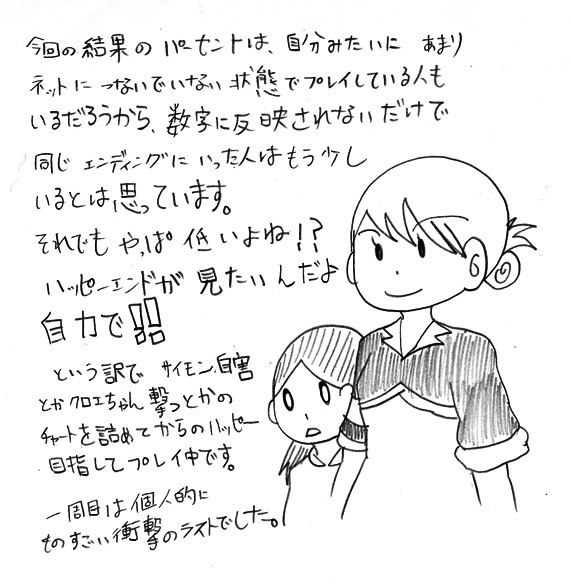 今回の結果のパーセントは、自分みたいに あまり
ネットにつないでいない状態でプレイしている人も
いるだろうから、数字に反映されないだけで
同じエンディングにいった人はもう少し
いるとは思っています。
それでもやっぱ低いよね!?
ハッピーエンドが見たいんだよ
自力で!!
という訳でサイモン自害
とかクロエちゃん撃つとかの
チャートを詰めてからのハッピー
目指してプレイ中です。
一周目は個人的に
ものすごい衝撃のラストでした。